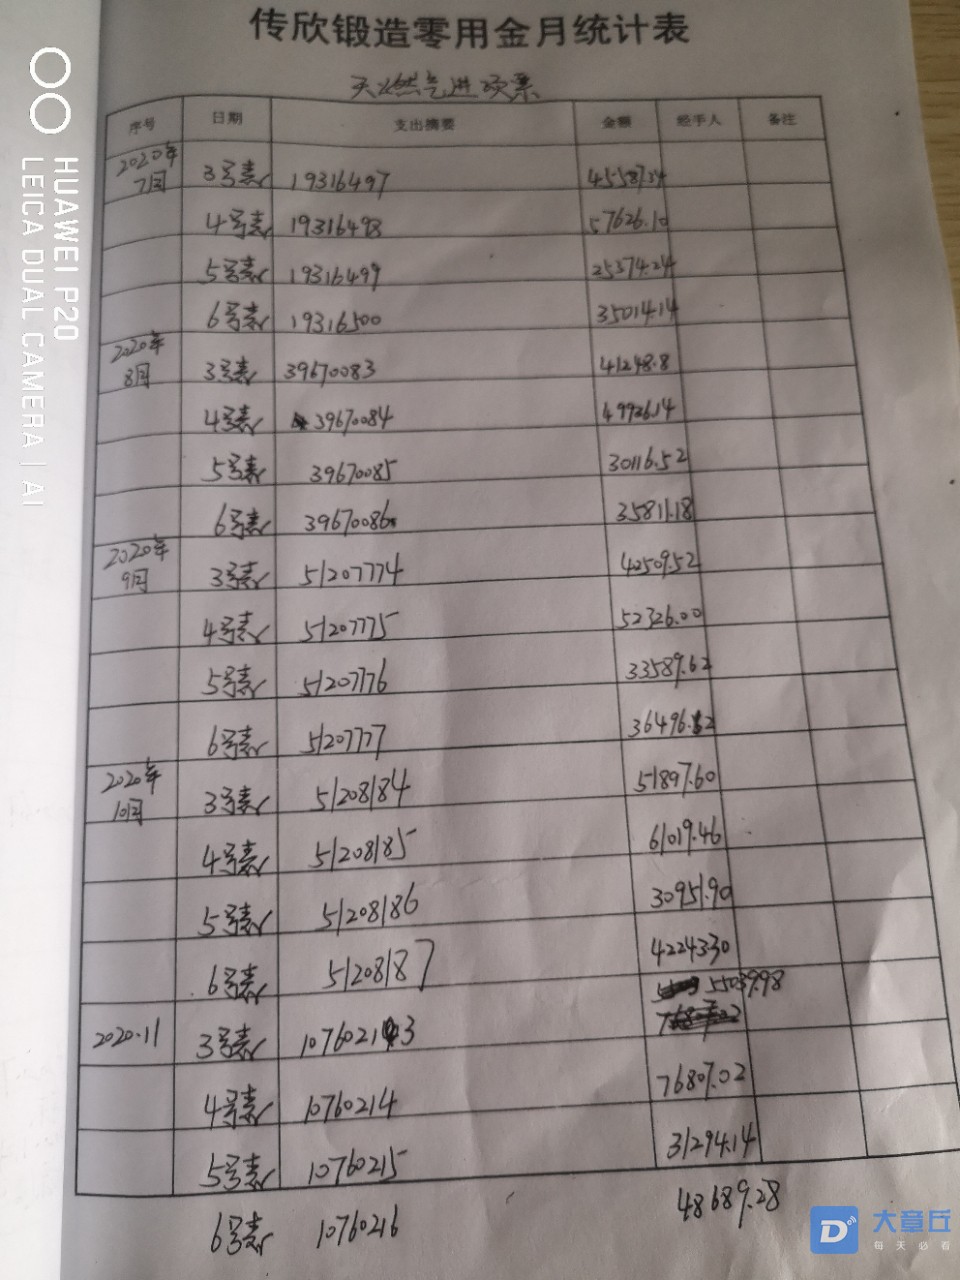 传欣锻造零用金月统计表
天然气进项票
序号 日期 支出摘要 金额 经手人 备注
2020年7月 3号表 19316497 45587.34
4号表 19316498 57626.10
5号表 19316499 25374.24
6号表 19316500 35014.14
2020年8月 3号表 39670083 41248.8
4号表 39670084 49926.14
5号表 39670085 30116.52
6号表 39670086 35811.18
2020年9月 3号表 51207774 42509.52
4号表 51207775 52326.00
5号表 51207776 33589.62
6号表 51207777
2020年10月 3号表 51208184 51897.60
4号表 51208185 61019.46
5号表 51208186 30951.90
6号表 51208187 42243.30
2020.11 3号表 10760213 55039.98
4号表 10760214 76807.02
5号表 10760215 31294.14
6号表 10760216 48689.28
HUAWEI P20
LEICA DUAL CAMERA | AI
大章丘
每天必看